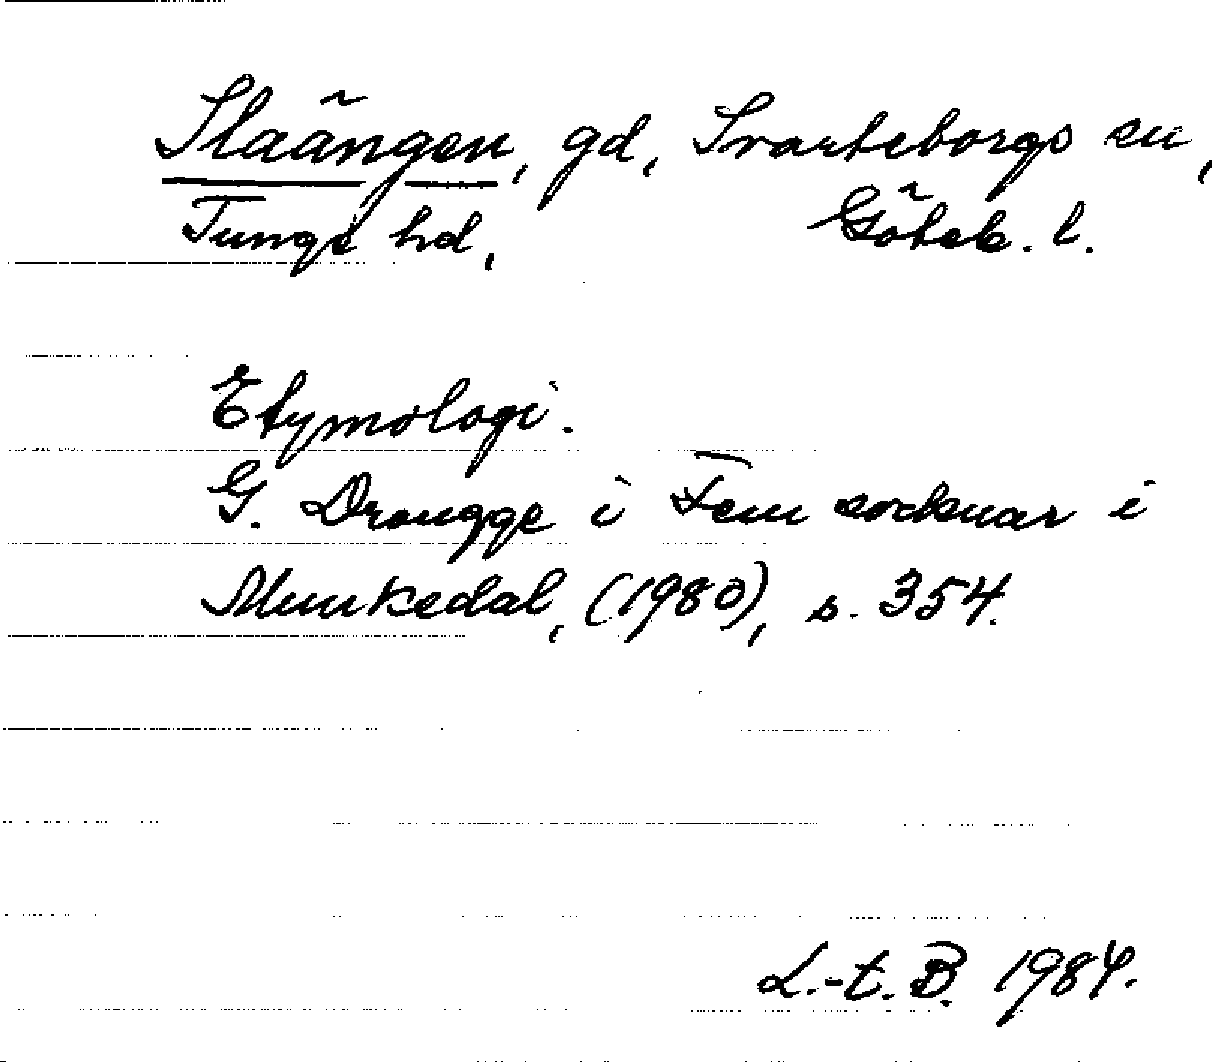 Slaängen, gd, Svarteborgs sn,
Tunge hd, Göteb. l.
Etymologi.
G. Drougge i Fem socknar i
Munkedal, (1980), s. 354.
L.-t. B. 1984.